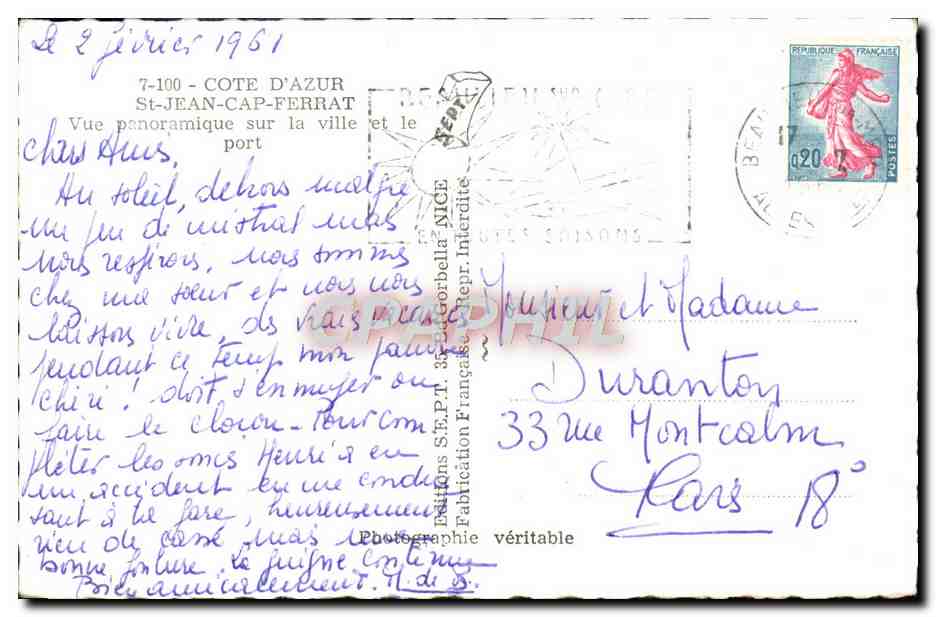 Le 2 février 1961
7-100 - COTE D'AZUR
St-JEAN-CAP-FERRAT
Vue panoramique sur la ville et le
port
Chers Amis,
Au soleil, dehors malgré
un peu de mistral mais
nous respirons, nous sommes
chez ma sœur et nous nous
laissons vivre, des vraies vacances
pendant ce temps mon pauvre
chéri! doit s'ennuyer ou
faire le clown - Pour com
pléter les ennuis Henri a eu
un accident en me condui
sant à la gare, heureusement
rien de cassé mais
bonne la guigne continue
Bien amicalement. M. de B.
Editions S.E.P.T. 35 Bd Gorbella NICE
Fabrication Française - Repr. Interdite
SEPT
Photographie véritable
REPUBLIQUE FRANÇAISE
0,20
POSTES
BEAULIEU SUR MER
EN TOUTES SAISONS
Monsieur et Madame
Duranton
33 rue Montcalm
Paris 18°
CPAPHIL